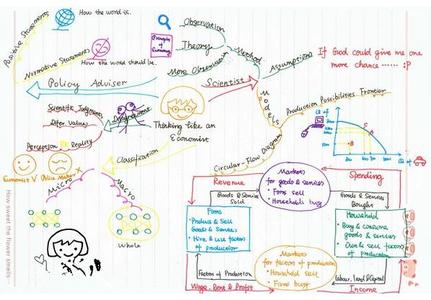 How the word is.
Positive Statements
Observation
Principles of Economy
Theory
Method
More Observation
Normative Statements
How the word should be.
Policy Adviser
Scientist
Assumptions
If God could give me one
more chance ...... :P
Models
Production Possibilities Frontier
Thinking like an
Economist
Scientific Judgments
Differ Values
Disagreement
Perception V. Reality
Classification
Circular-Flow Diagram
Economist V. Policy Maker
Micro
Macro
Whole
How sweet the flower smells
Revenue
Spending
Goods & Services
Sold
Markets
for goods & services
• Firms sell
• Households buy
Goods & Services
Bought
Firms
• Produce & Sell
Goods & Services
• Hire & use factors
of production
Household
• Buy & consume
goods & services
• Own & sell factors
of production
Markets
for factors of production
• Household sell
• Firms buy
Factors of Production
Labour, land & Capital
Wage, Rent & Profit
Income